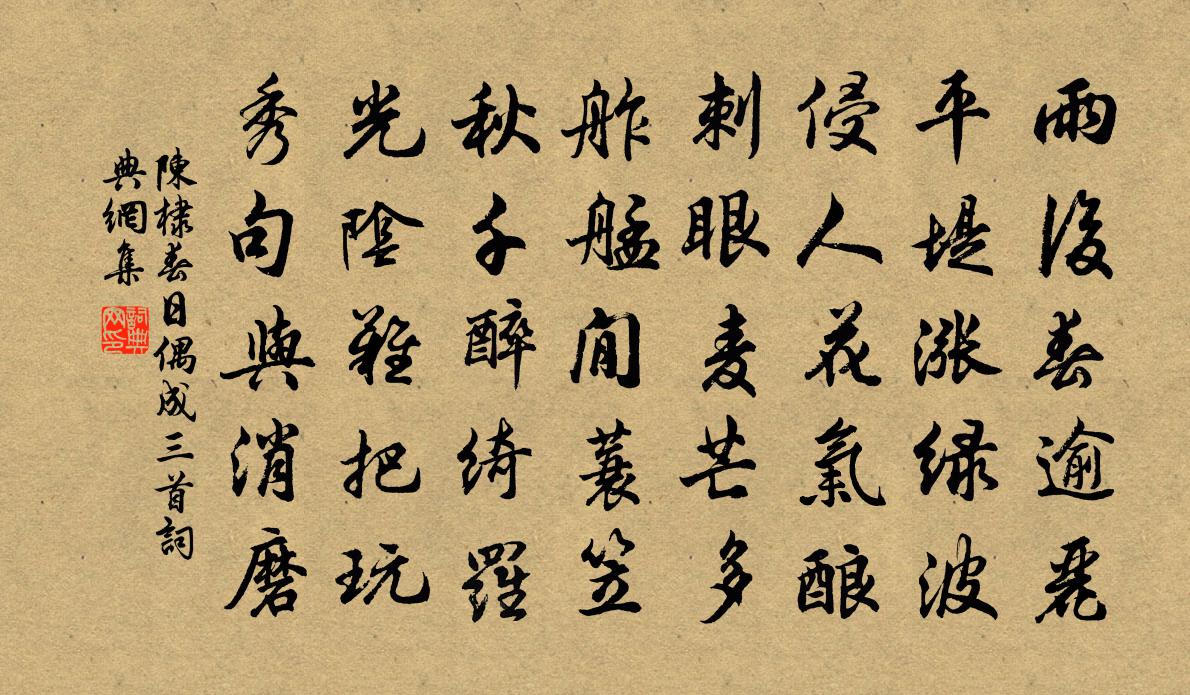 雨後春逾麗
平堤漲緑波
侵人花氣酿
刺眼麦芒多
舴艋閒蓑笠
秋千醉綺羅
光陰難把玩
秀句與消磨
陳棣春日偶成三首詞
典網集
詞典
网印